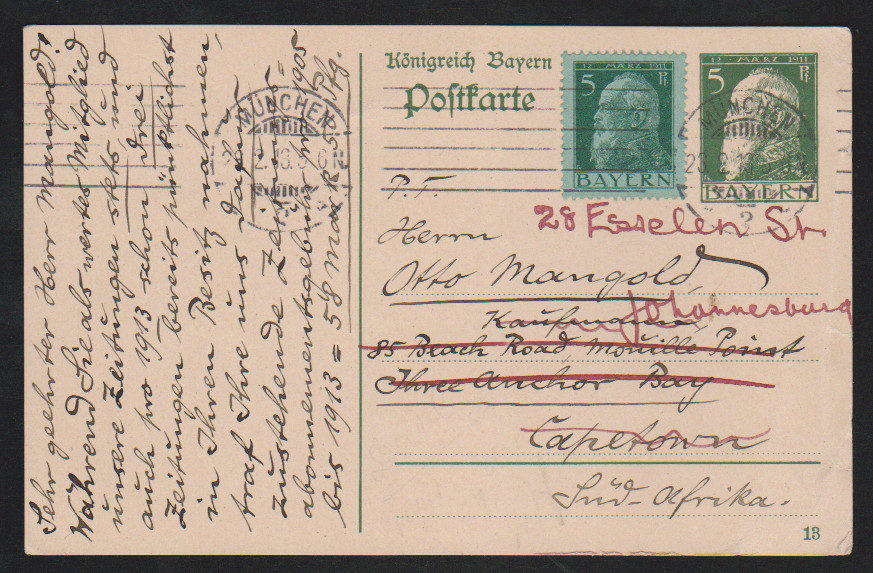 Sehr geehrter Herr Mangold!
Während Sie als wertes Mitglied
unsere Zeitungen stets und
auch pro 1913 schon drei
Zeitungen bereits pünktlichst
in Ihren Besitz nahmen,
traf Ihre uns dafür
zustehende Zeitungs=
abonnementsgebühr von 1905
bis 1913 = 58 Mark 5 Pfg.
Königreich Bayern
Postkarte
12 MÄRZ 1911
5 Pf
BAYERN
12 MÄRZ 1911
5 Pf
BAYERN
MÜNCHEN
MÜNCHEN
2
P. T.
28 Esselen St.
Herrn
Otto Mangold,
Kaufmann,
Johannesburg
85 Beach Road, Mouille Point
Three Anchor Bay
Capetown
Süd-Afrika.
13